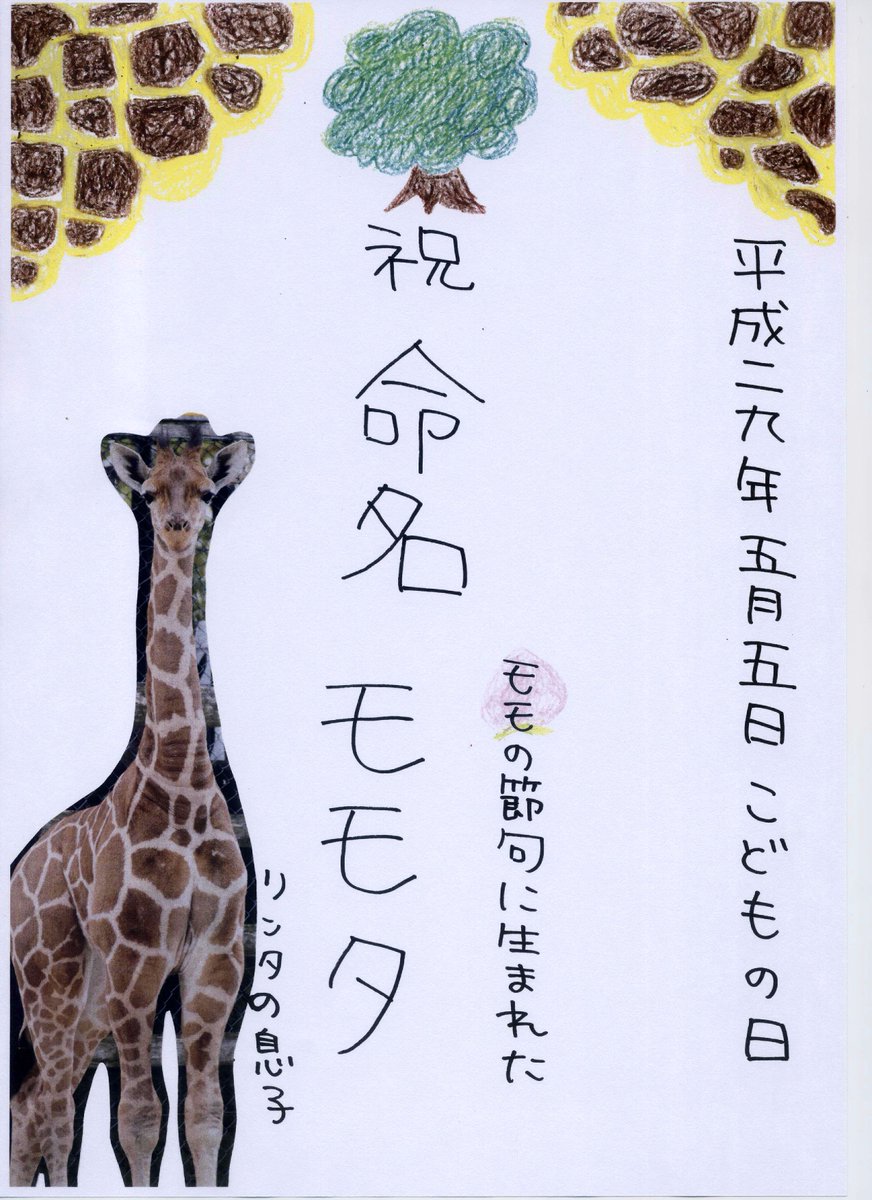 平成二九年五月五日こどもの日
モモの節句に生まれた
祝命名モモタ
リンタの息子